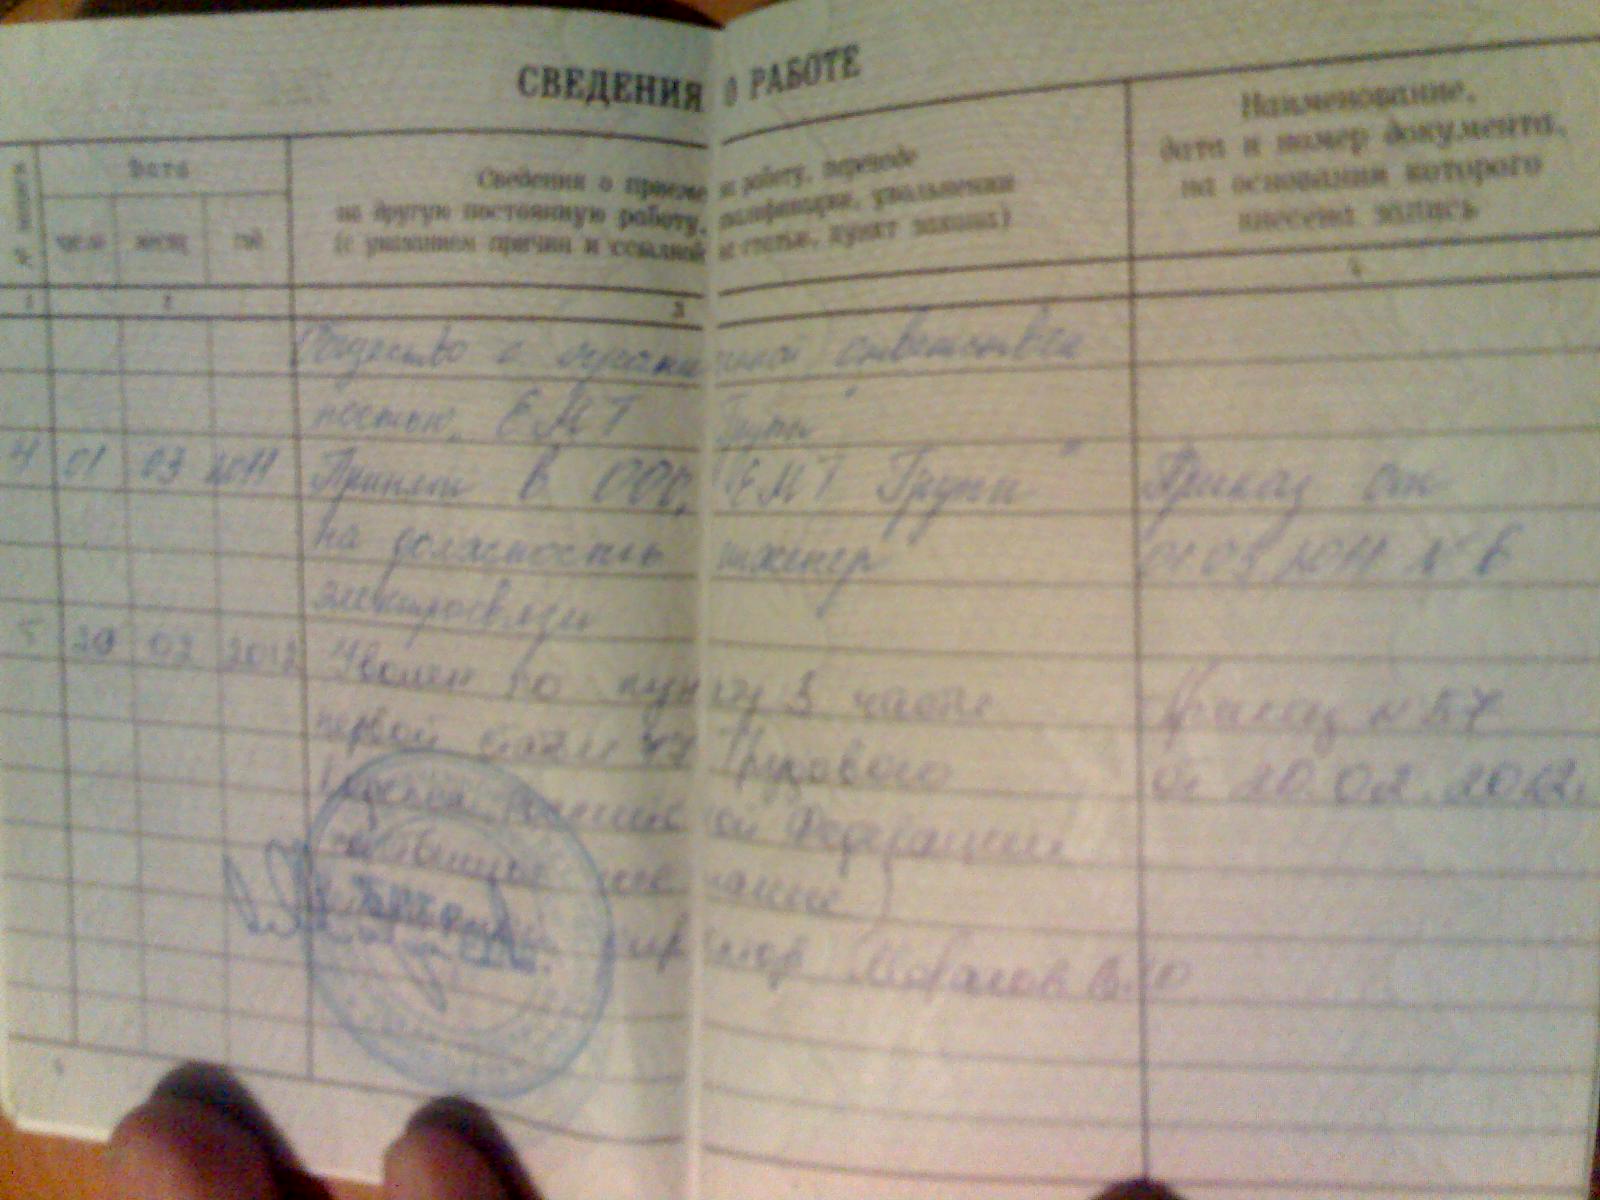 СВЕДЕНИЯ О РАБОТЕ
№ записи
Дата
число месяц год
Сведения о приеме на работу, переводе
на другую постоянную работу, квалификации, увольнении
(с указанием причин и ссылкой на статью, пункт закона)
Наименование,
дата и номер документа,
на основании которого
внесена запись
1 2 3 4
Общество с ограниченной ответствен
ностью "ЕМТ Групп"
4 01 03 2011 Принят в ООО "ЕМТ Групп" Приказ от
на должность инженер 01 03 2011 № 6
электросвязи
5 20 02 2012 Уволен по пункту 3 части Приказ №
первой статьи 77 Трудового от 20.02.2012г.
Кодекса Российской Федерации
(собственное желание)
директор